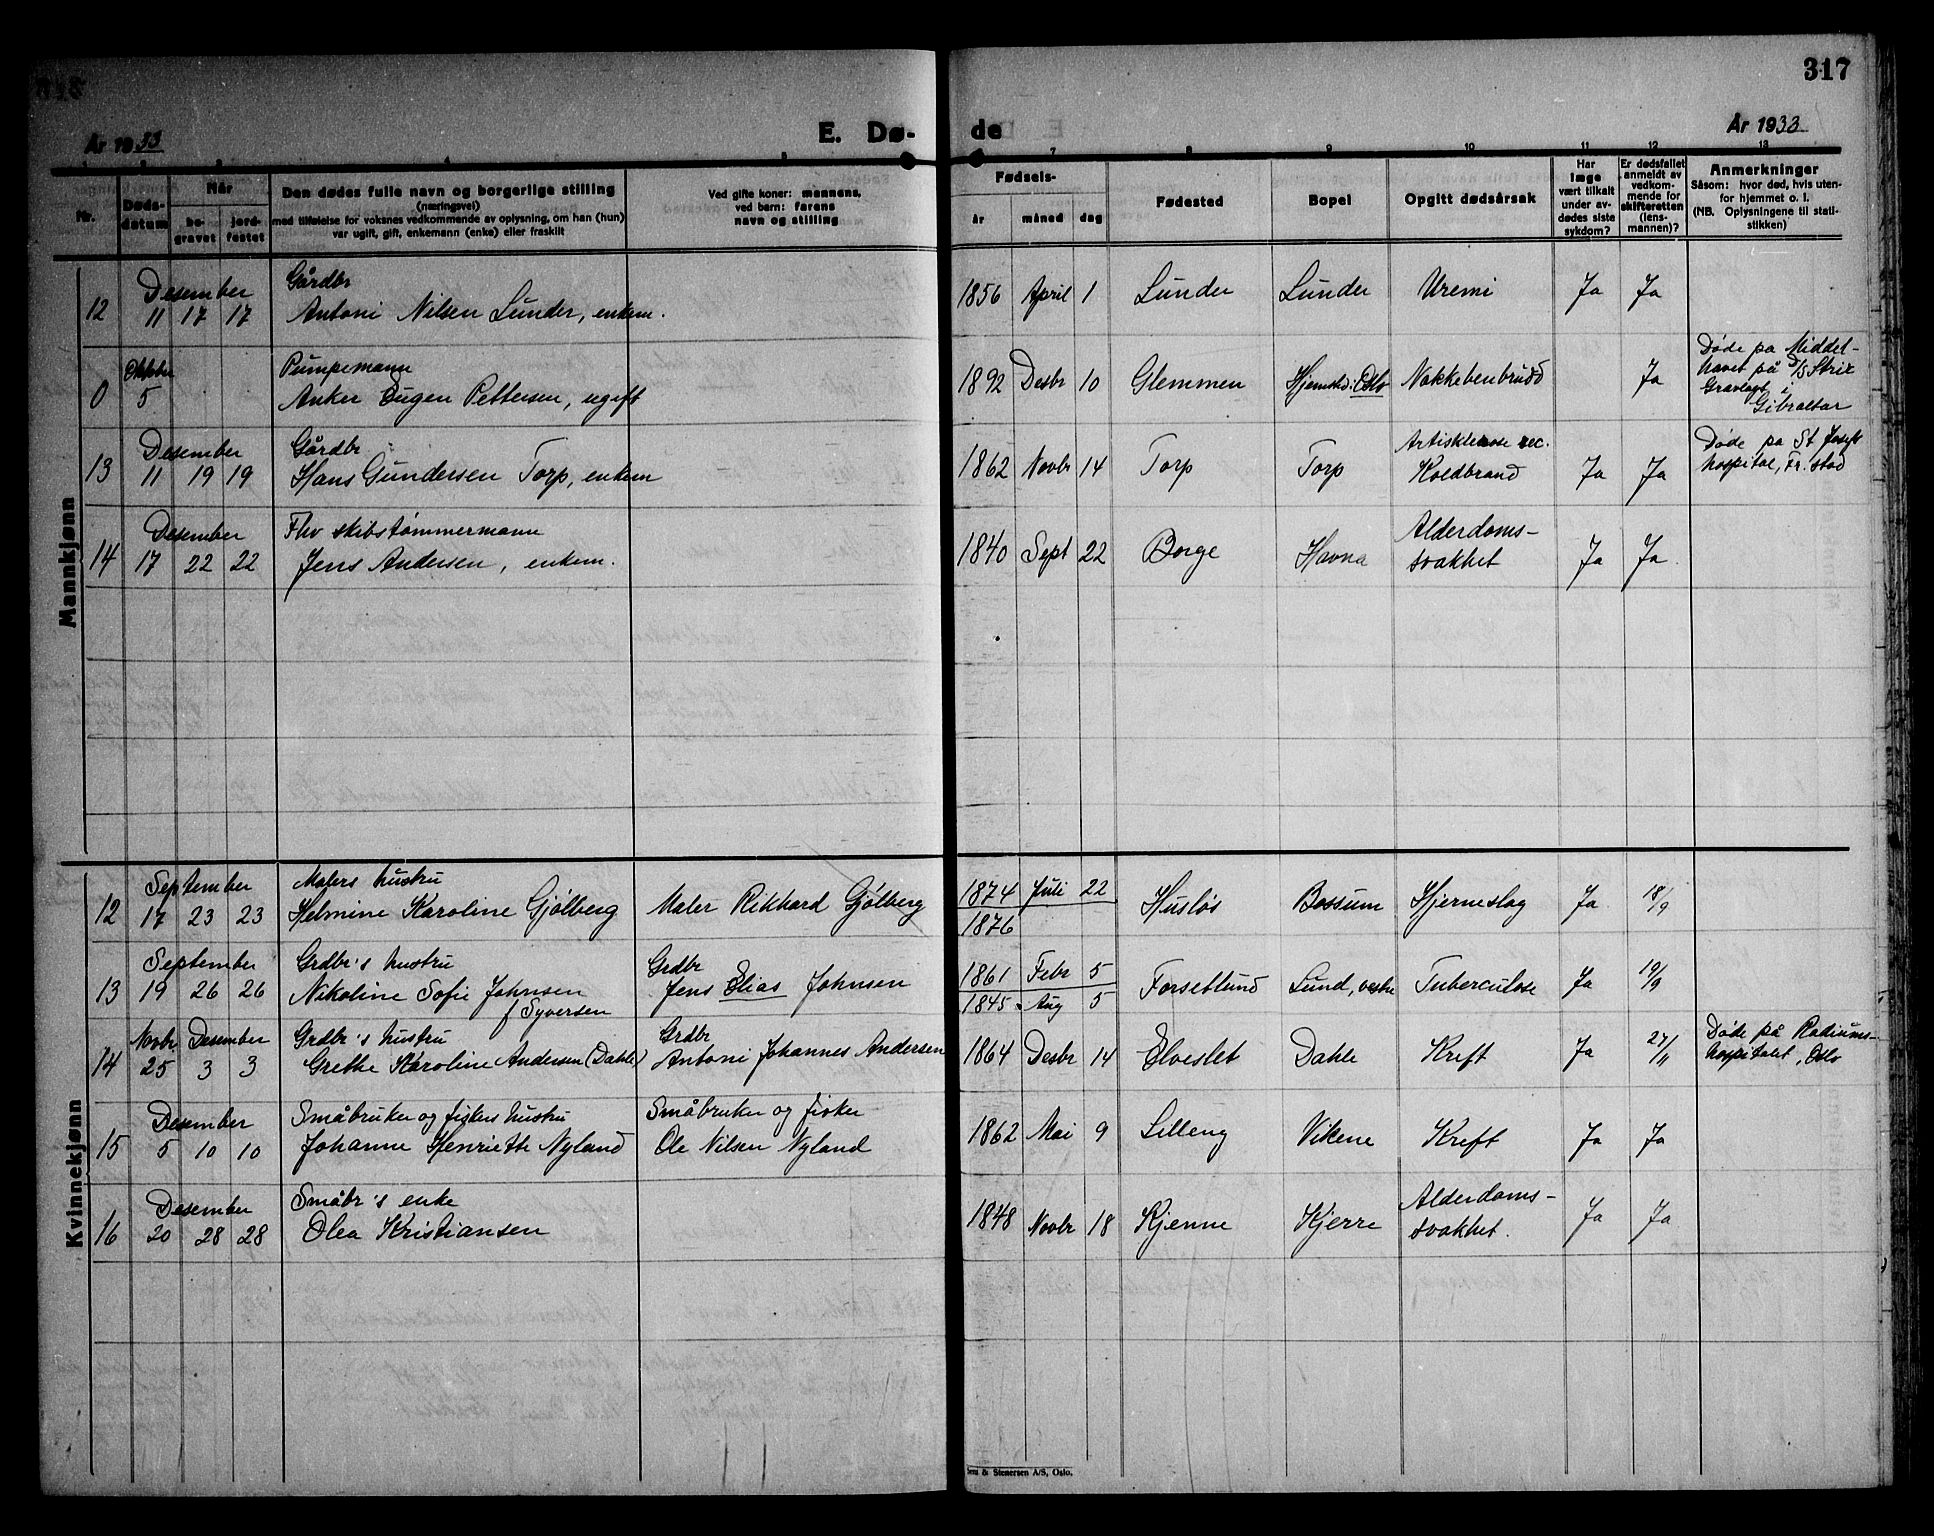 317
År 1933
E. Dø-
de
År 1933
7 8 9 10 11 12 13
Nr.
Døds-
datum
Når
be-
gravet
jord-
festet
Den dødes fulle navn og borgerlige stilling
(næringsvei)
med tilføielse for voksnes vedkommende av oplysning, om han (hun)
var ugift, gift, enkemann (enke) eller fraskilt
Ved gifte koner: mannens,
ved barn: farens
navn og stilling
Fødsels-
år måned dag
Fødested
Bopel
Opgitt dødsårsak
Har
læge
vært tilkalt
under av-
dødes siste
sykdom?
Er dødsfallet
anmeldt av
vedkom-
mende for
skifteretten
(lens-
mannen)?
Anmerkninger
Såsom: hvor død, hvis uten-
for hjemmet o. l.
(NB. Oplysningene til stati-
stikken)
Mannkjønn
Desember Gårdbr
12 11 17 17 Antoni Nilsen Lunder, enkem. 1856 April 1 Lunder Lunder Uremi Ja Ja
Oktober Pumpemann
0 5 Anker Eugen Pettersen, ugift 1892 Desbr 10 Glemmen Hjemsted: Oslo Nakkebenbrudd Ja
Døde på Middel-
havet på D/S Strix
Gravlagt i
Gibraltar
Desember Gårdbr
13 11 19 19 Hans Gundersen Torp, enkem 1862 Novbr 14 Torp Torp
Koldbrand Ja Ja
Døde på St Josefs
hospital, Fr.stad
Desember Fhv skibstømmermann
14 17 22 22 Jens Andersen, enkem. 1840 Sept 22 Borge Havna
Alderdoms-
svakhet Ja Ja
Kvinnekjønn
September Malers hustru
12 17 23 23 Helmine Karoline Gjølberg Maler Rikhard Gjølberg 1874 Juli 22 Husløs Bossum Hjerneslag Ja 18/9
1876
September Grdbr's hustru Grdbr
13 19 26 26 Nikoline Sofie Johnsen Jens Elias Johnsen 1861 Febr 5 Forsetlund Lund, vestre Tuberculose Ja 19/9
f Syversen 1845 Aug 5
Novbr Desember Grdbr's hustru Grdbr
14 25 3 3 Grethe Karoline Andersen (Dahle) Antoni Johannes Andersen 1864 Desbr 14 Elveslet Dahle Kreft Ja 27/11
Døde på Radiums-
hospitalet, Oslo
Desember Småbruker og fiskers hustru Småbruker og fisker
15 5 10 10 Johanne Henriette Nyland Ole Nilsen Nyland 1862 Mai 9 Lilleng Vikene Kreft Ja Ja
Desember Småbr's enke
16 20 28 28 Olea Kristiansen 1848 Novbr 18 Kjenne Kjerre
Alderdoms-
svakhet. Ja Ja
& Stenersen A/S, Oslo.